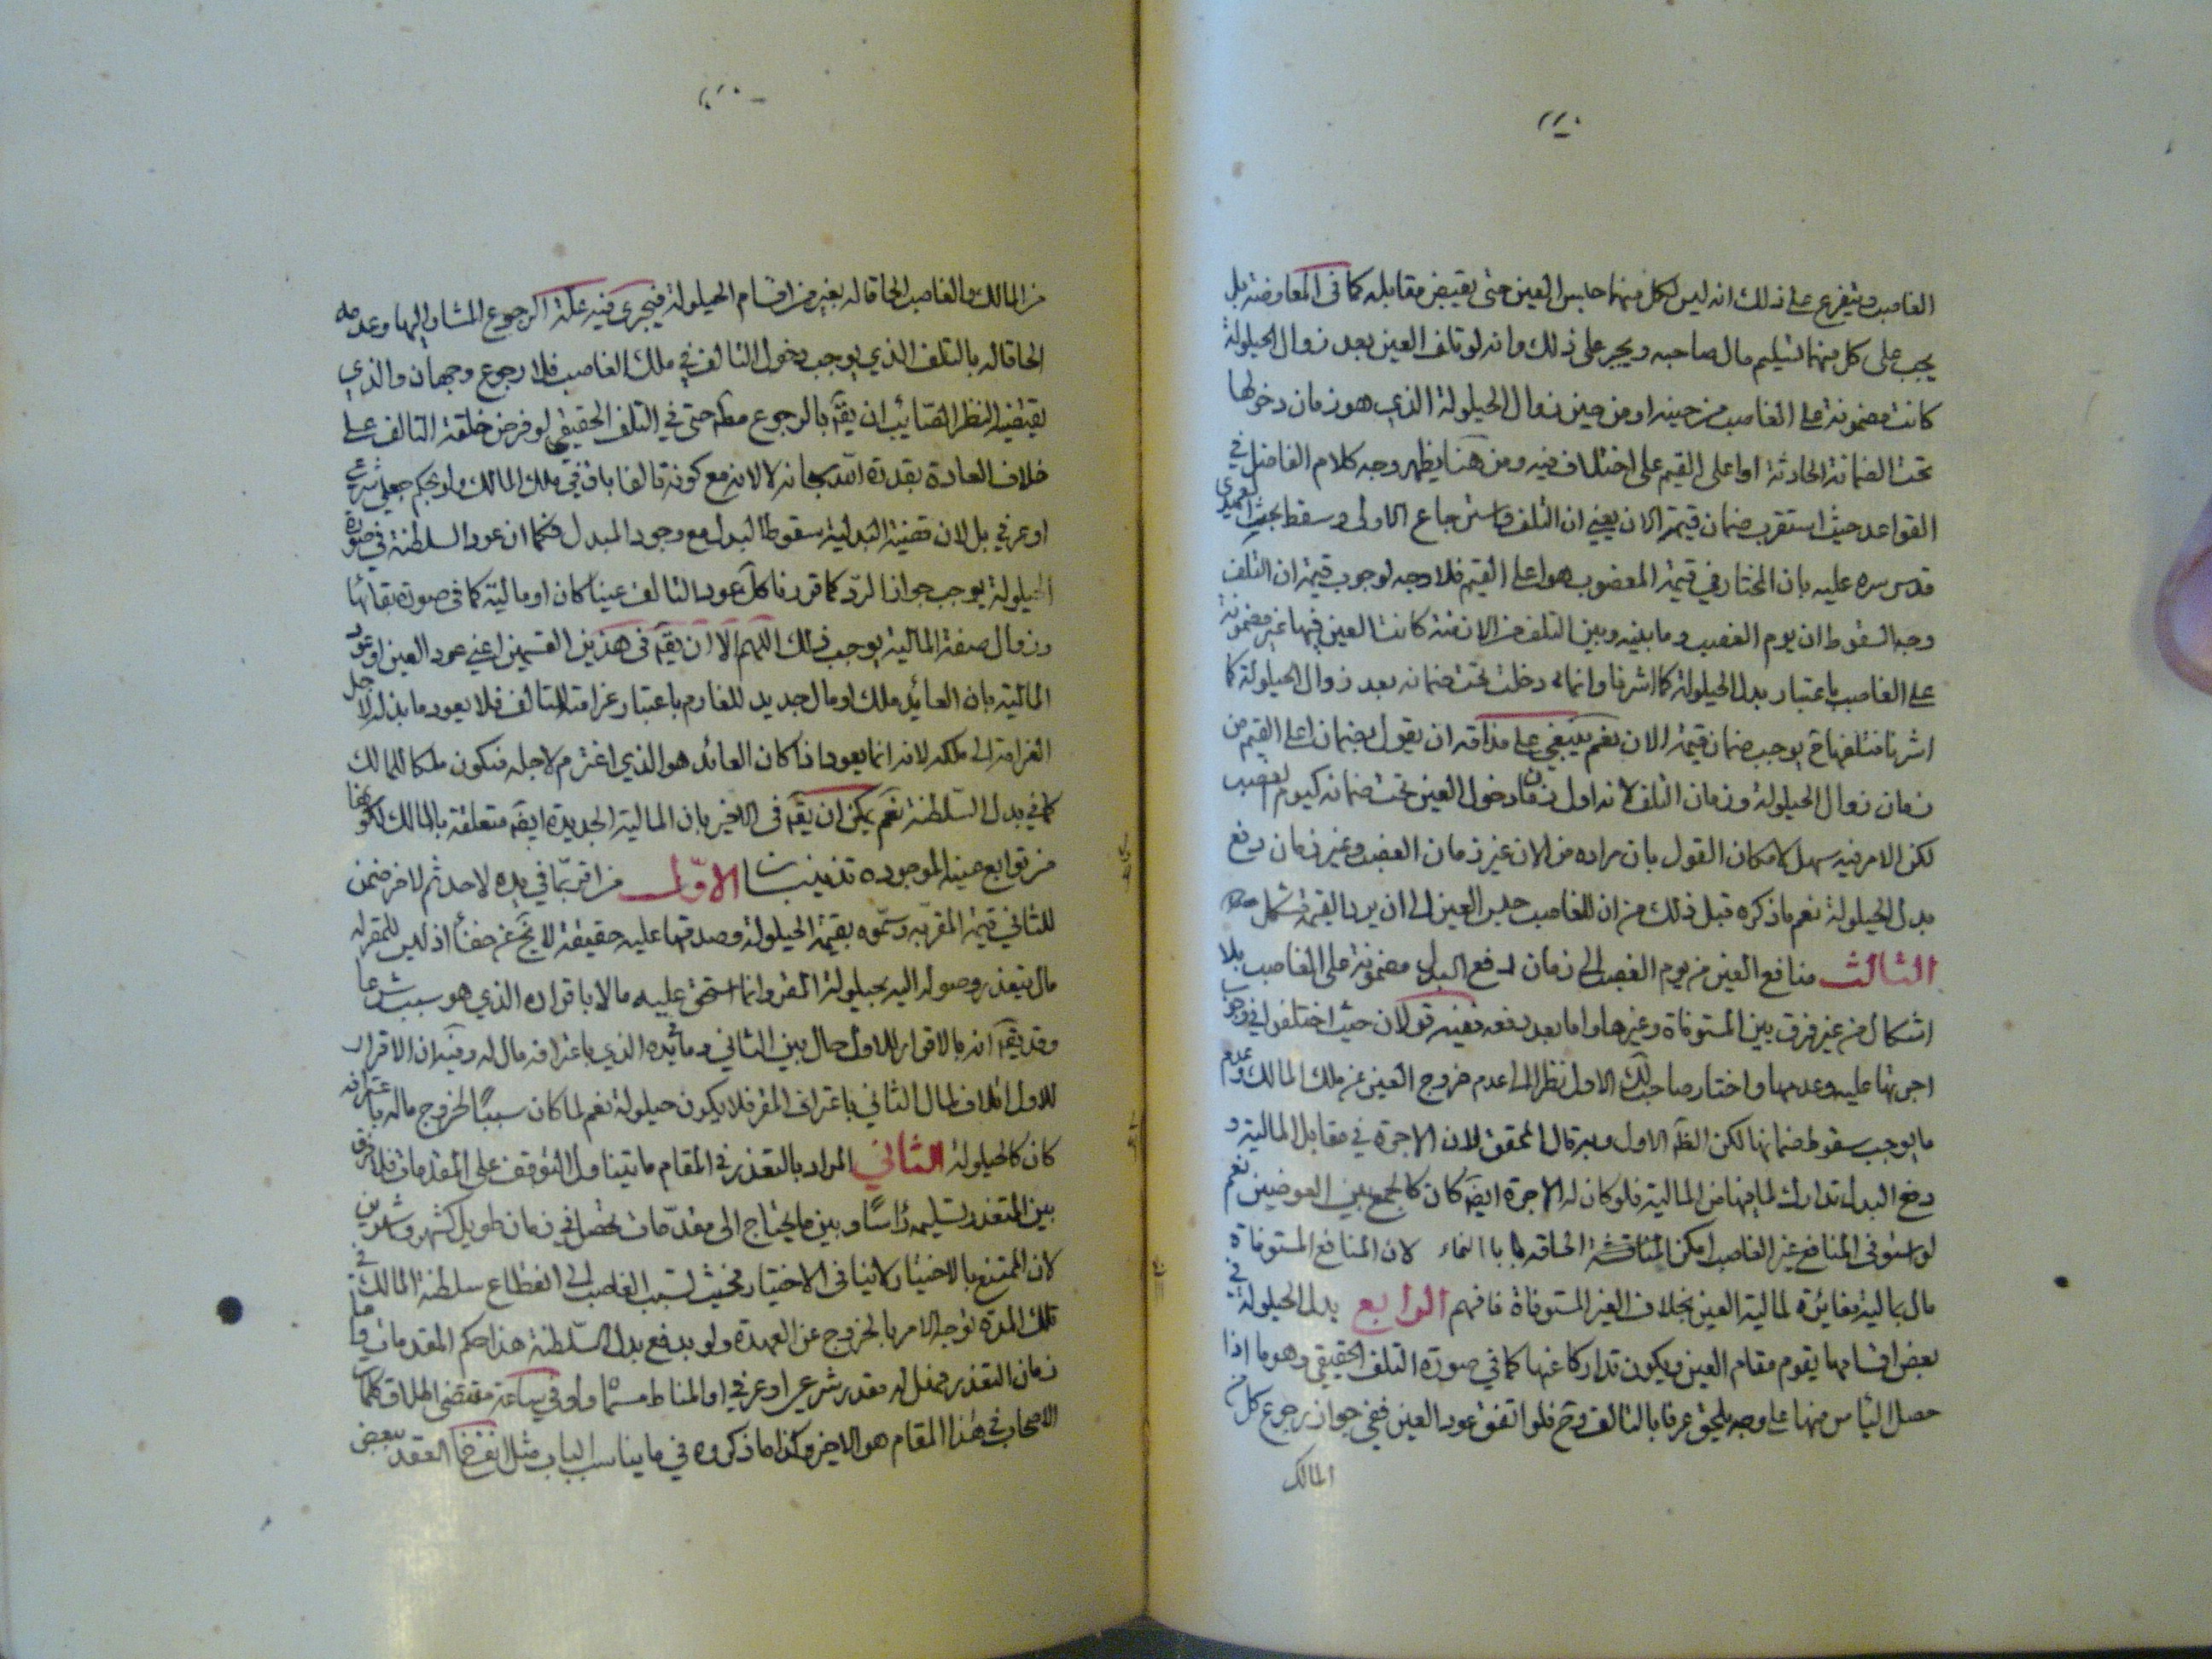 الغاصب ويتفرع على ذلك انه ليس لكل منهما حبس العين حتى يقبض مقابله كما فى المعاوضة بل
يجب على كل منهما تسليم مال صاحبه ويجبر على ذلك وانه لو تلف العين بعد زوال الحيلولة
كانت مضمونة على الغاصب من حينه او من حين زوال الحيلولة الذي هو زمان دخولها
تحت الضمانة الحادثة او اعلى القيم على اختلاف فيه ومن هنا يظهر وجه كلام الفاضل في
القواعد حيث استقرب ضمان قيمة الان يعني ان التلف واسترجاع الاولى وسقط بحث العميدى
قدس سره عليه بان المختار في قيمة المغصوب هو اعلى القيم فلا وجه لوجوب قيمة ان التلف
وجه السقوط ان يوم الغصب وما بينه وبين التلف من الازمنة كانت العين فيها غير مضمونة
على الغاصب باعتبار بدل الحيلولة كما اشرنا وانما دخلت تحت ضمانه بعد زوال الحيلولة كما
اشرنا فتلفها ح يوجب ضمان قيمة الان نعم ينبغي على مذاقه ان يقول بضمان اعلى القيم من
زمان زوال الحيلولة وزمان التلف لانه اول زمان دخول العين تحت ضمانه كيوم الغصب
لكن الامر فيه سهل لامكان القول بان مراده من الان غير زمان الغصب وغير زمان دفع
بدل الحيلولة نعم ما ذكره قبل ذلك من ان للغاصب حبس العين الى ان يرد القيمة مشكل
الثالث منافع العين من يوم الغصب الى زمان دفع البدل مضمونة على الغاصب بلا
اشكال من غير فرق بين المستوفاة وغيرها واما بعد دفعه ففيه قولان حيث اختلفوا في وجوب
اجرتها عليه وعدمها واختار صاحب لك الاول نظرا الى عدم خروج العين عن ملك المالك وعدم
ما يوجب سقوط ضمانها لكن الظ الاول وبه قال المحقق لان الاجرة في مقابل المالية و
دفع البدل تدارك لما فيها من المالية فلو كان له الاجرة ايضا كان كالجمع بين العوضين نعم
لو استوفى المنافع غير الغاصب امكن المناقشة الحاقه بالنماء لان المنافع المستوفاة
مال بمالية مغايرة لمالية العين بخلاف الغير المستوفاة فافهم الرابع بدل الحيلولة في
بعض اقسامها يقوم مقام العين ويكون تداركا عنها كما في صورة التلف الحقيقي وهو ما اذا
حصل اليأس منها على وجه يلحق عرفا بالتالف وح فلو اتفق عود العين ففي جواز رجوع كل من
المالك
من المالك والغاصب الحاقا له بغيره من اقسام الحيلولة فيجرى فيه علة الرجوع المشار اليها وعدمه
الحاقا له بالتلف الذي يوجب دخول التالف في ملك الغاصب فلا رجوع وجهان والذي
يقتضيه النظر الصائب ان يقم بالرجوع مطم حتى في التلف الحقيقي لو فرض خلقة التالف على
خلاف العادة بقدرة الله سبحانه لا لانه مع كونه تالفا باق في ملك المالك ولو بحكم جعلى شرعي
او عرفي بل لان قضية البدلية سقوط البدل مع وجود المبدل فكما ان عود السلطنة في صورة
الحيلولة يوجب جواز الرد كما قررنا كل عود التالف عينا كان او مالية كما فى صورة بقائها
وزوال صفة المالية يوجب ذلك اللهم الا ان يقم فى هذين القسمين اعني عود العين او عود
المالية بان العائد ملك او مال جديد للغارم باعتبار غرامته للتالف فلا يعود ما بذله لاجل
الغرامة الى ملكه لانه انما يعود اذا كان العائد هو الذي اغترم لاجله فيكون ملكا للمالك
كما في بدل السلطنة نعم يمكن ان يقم فى الاخير بان المالية الجديدة ايضا متعلقة بالمالك لكونها
من توابع عينه الموجوده تذنيبات الاول من اقر بما في يده لاحد ثم لاخر ضمن
للثاني قيمة المقر به وسموه بقيمة الحيلولة وصدقها عليه حقيقة لا يخ عن خفأ اذ ليس للمقر له
مال تيعذر وصوله اليه بحيلولة المقر وانما استحق عليه مالا باقراره الذي هو سبب شرعا
وقد يقم انه بالاقرار للاول حال بين الثاني وما في يده الذي باعترافه مال له وفيه ان الاقرار
للاول اتلاف لمال الثاني باعتراف المقر فلا يكون حيلولة نعم لما كان سببا لخروج ماله باعترافه
كان كالحيلولة الثاني المراد بالتعذر في المقام ما يتناول التوقف على المقدمات فلا فرق
بين المتعذر تسليمه رأسا وبين ما يحتاج الى مقدمات تحصل في زمان طويل كشهر وشهرين
لان الممتنع بالاختيار لا ينافى الاختيار فحيث تسبب الغاصب الى انقطاع سلطنة المالك في
تلك المدة توجه الامر بالخروج عن العهدة ولو بدفع بدل السلطنة هذا حكم المقدمات واما
زمان التعذر فهل له مقدر شرعى او عرفي او المناط مسماه ولو في ساعة مقتضى اطلاق كلمات
الاصحاب في هذا المقام هو الاخير وكذا ما ذكروه في ما يناسب الباب مثل انفساخ العقد ببعض